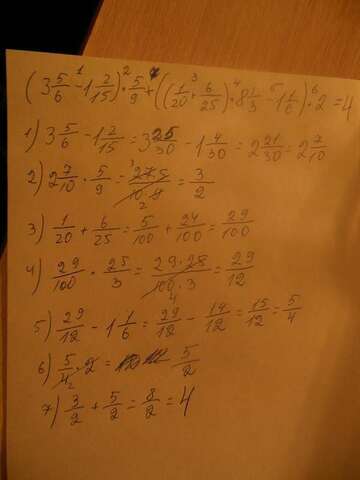 (3 5/6 -¹ 1 2/15) ·² 5/9 +⁷ ((1/20 +³ 6/25) ·⁴ 8 1/3 -⁵ 1 1/6) ·⁶ 2 = 4
1) 3 5/6 - 1 2/15 = 3 25/30 - 1 4/30 = 2 21/30 = 2 7/10
2) 2 7/10 · 5/9 = 27·5/10·9 = 3/2
3) 1/20 + 6/25 = 5/100 + 24/100 = 29/100
4) 29/100 · 25/3 = 29·25/100·3 = 29/12
5) 29/12 - 1 1/6 = 29/12 - 14/12 = 15/12 = 5/4
6) 5/4 · 2 = 5/2
7) 3/2 + 5/2 = 8/2 = 4